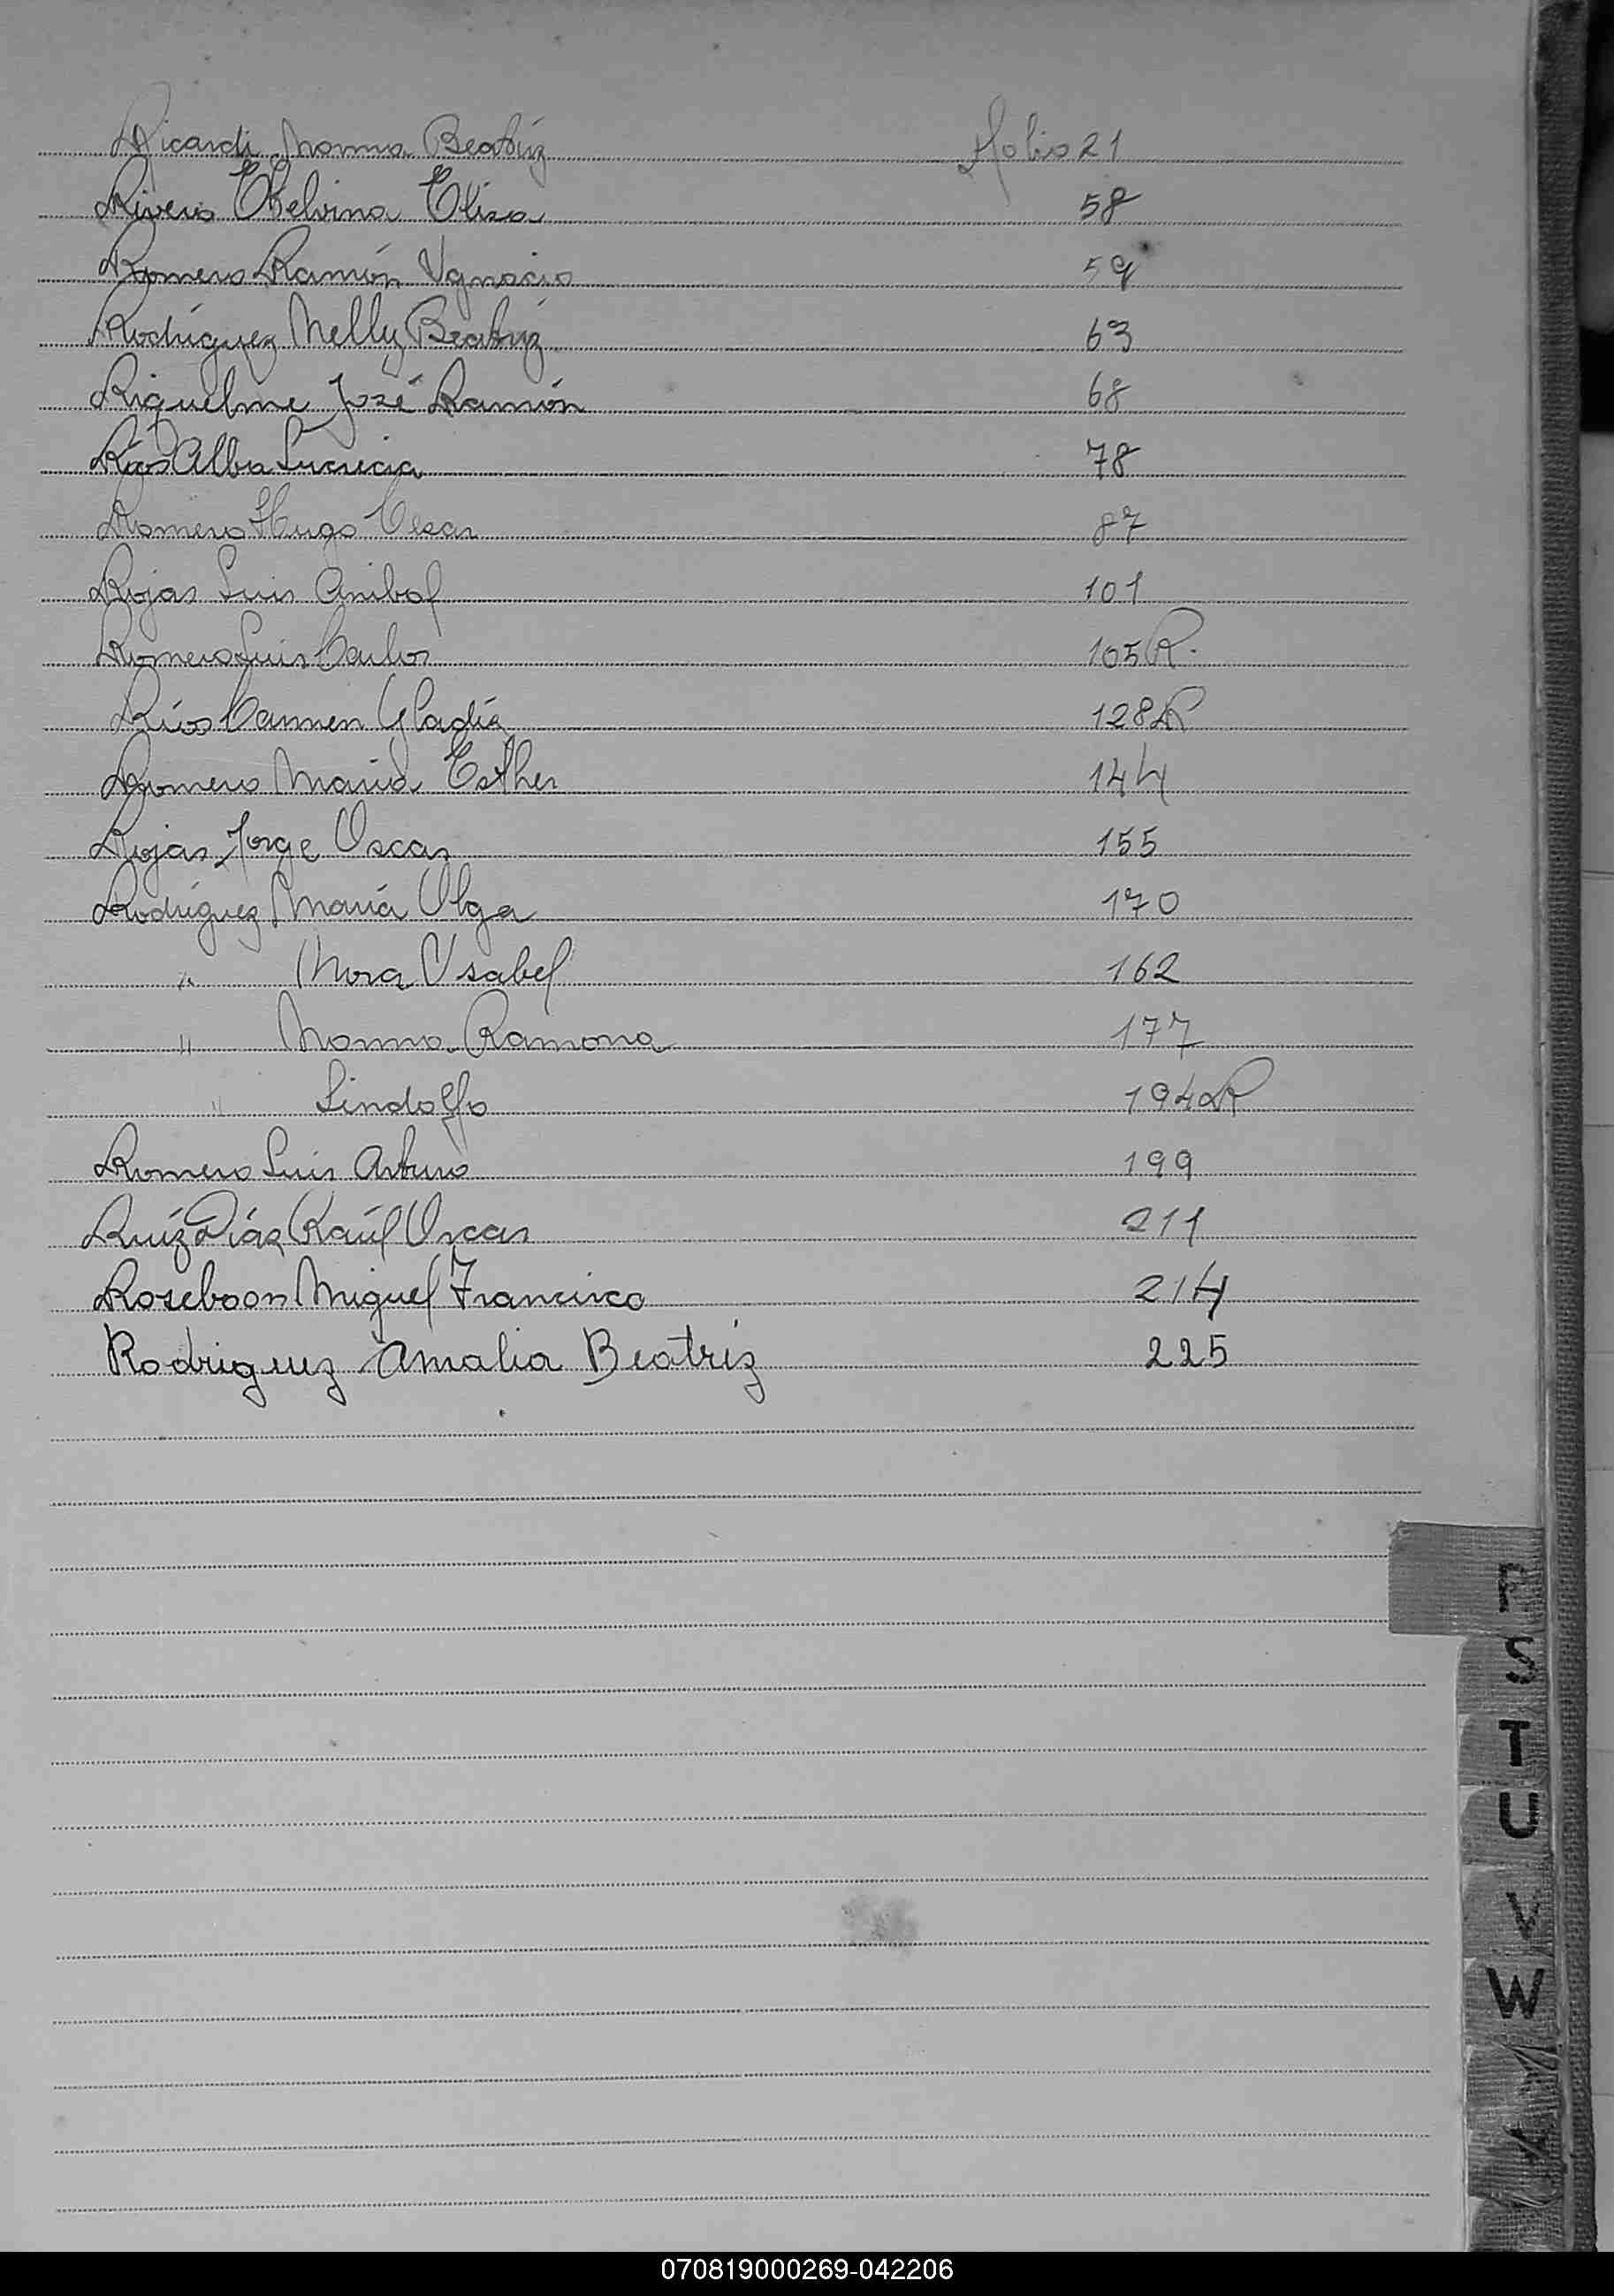 Ricardi Norma Beatríz Folio 21
Rivero Etelvina Elisa 58
Romero Ramón Ygnacio 59
Rodríguez Nelly Beatriz 63
Riquelme José Ramón 68
Ríos Alba Lucrecia 78
Romero Hugo Cesar 87
Rojas Luis Anibal 101
Romero Luis Carlos 105 R.
Ríos Carmen Gladis 128 R
Romero María Esther 144
Rojas Jorge Oscar 155
Rodríguez María Olga 170
" Nora Ysabel 162
" Norma Ramona 177
" Lindolfo 194 R
Romero Luis Arturo 199
Ruíz Díaz Raúl Oscar 211
Roseboon Miguel Francisco 214
Rodriguez Amalia Beatriz 225
R
S
T
U
V
W
070819000269-042206